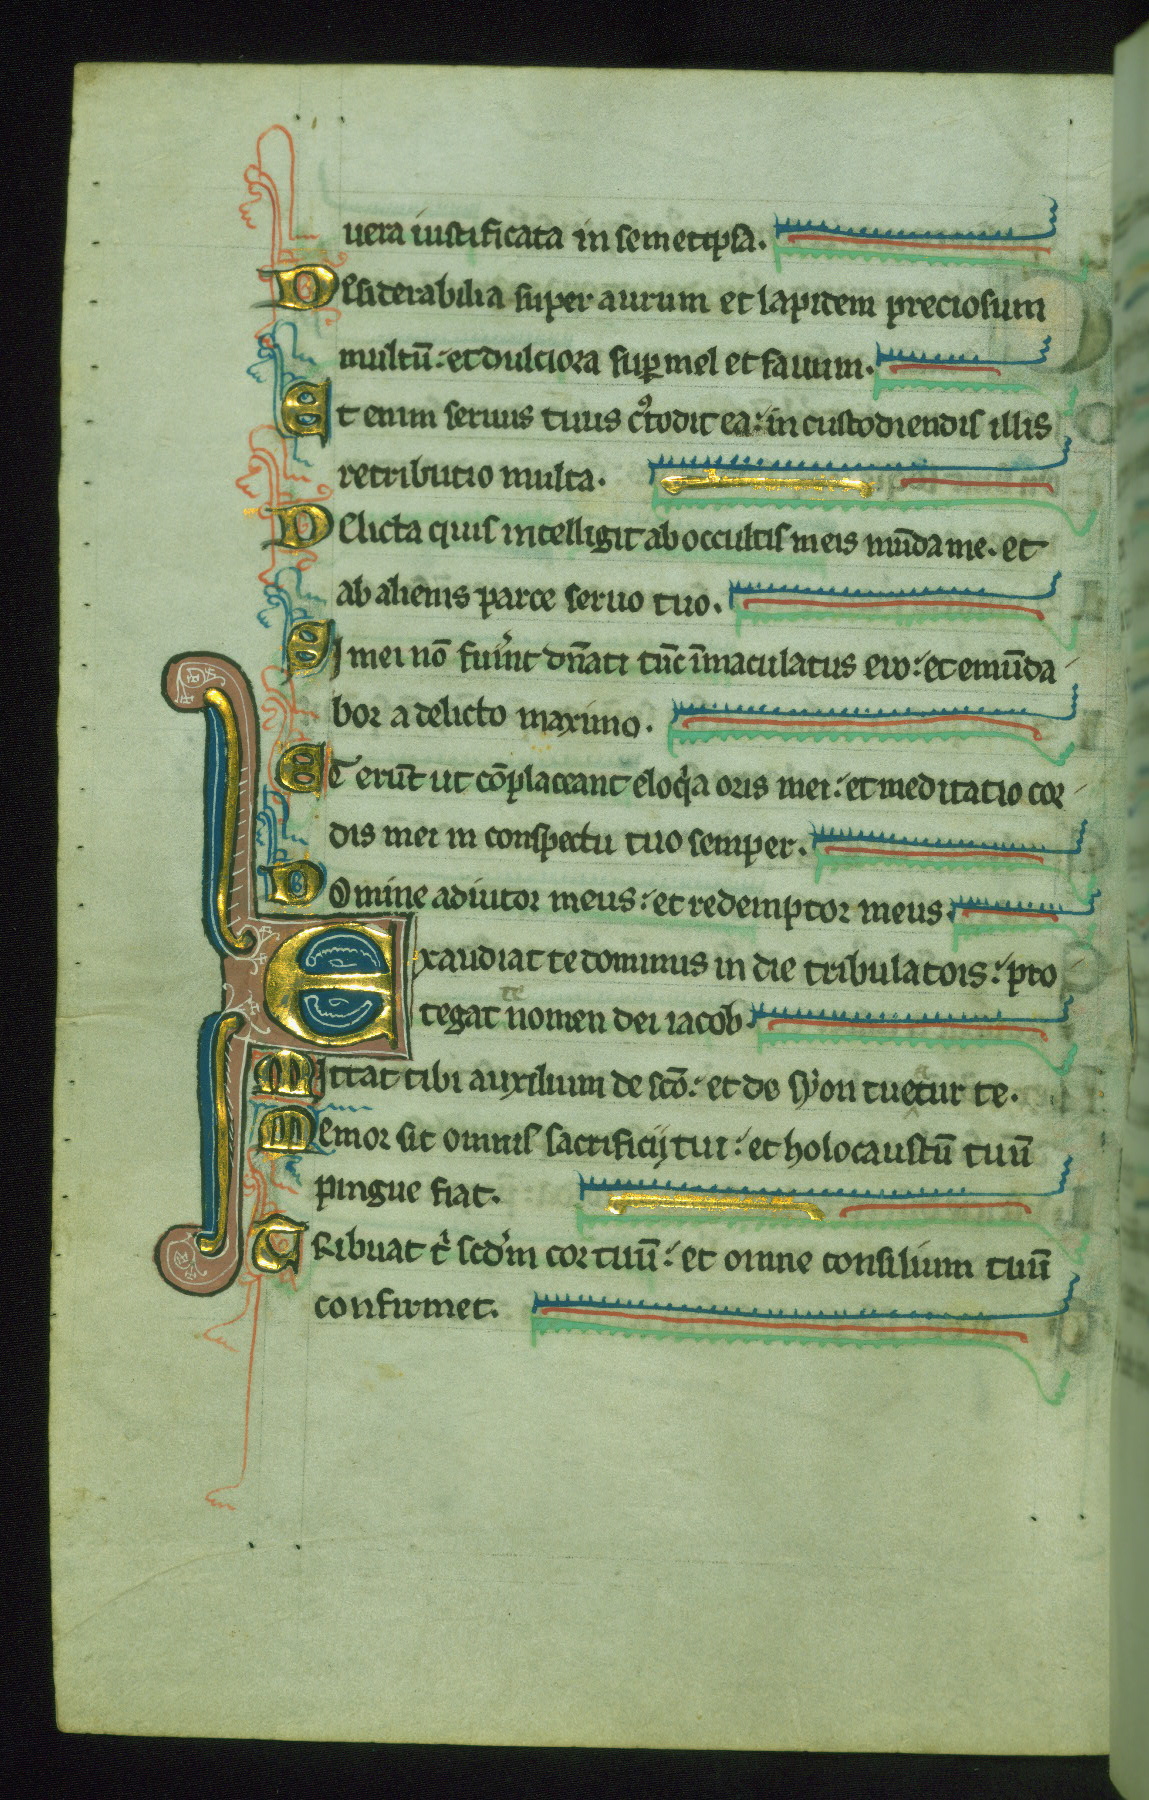 uera iustificata in semetipsa.
Desiderabilia super aurum et lapidem preciosum
multū: et dulciora suꝑ mel et fauum.
Et enim seruus tuus c᷒todit ea: in custodiendis illis
retributio multa.
Delicta quis intelligit ab occultis meis mūda me. et
ab alienis parce seruo tuo.
Si mei nō fuẜint dn̄ati tūc īmaculatus ero: et emūda
bor a delicto maximo.
Et erūt ut cōplaceant eloq̄a oris mei: et meditatio cor
dis mei in conspectu tuo semper.
Domine adiutor meus: et redemptor meus.
Exaudiat te dominus in die tribulatois: pro
te
tegat nomen dei iacob.
Mittat tibi auxilium de scō: et de syon tuetur te.
Memor sit omnis sacrificij tui: et holocaustū tuū
pingue fiat.
Tribuat t̄ scd'm cor tuū: et omne consilium tuū
confirmet.